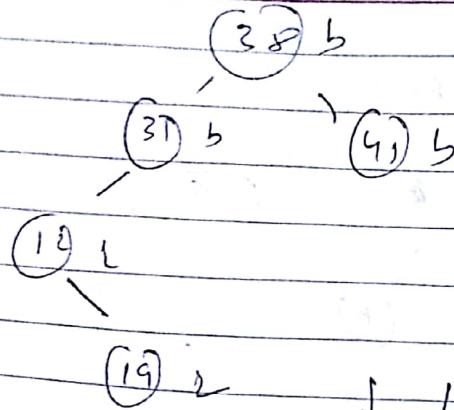 38 b
31 b 41 b
12 r
19 r